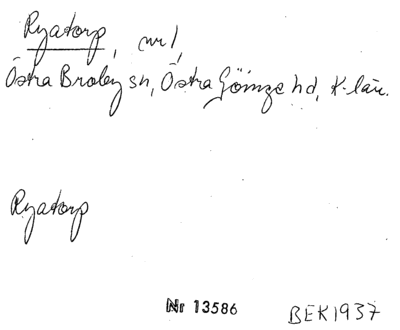 Ryatorp, nr 1,
Östra Broby sn, Östra Göinge hd, K-län.
Ryatorp
Nr 13586
BEK1937